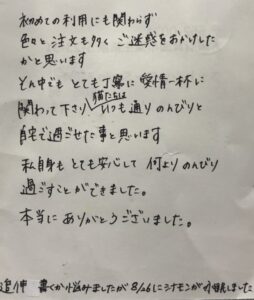 初めての利用にも関わらず
色々と注文も多く ご迷惑をおかけした
かと思います
そん中でも とても丁寧に 愛情一杯に
猫たちは
関わって下さり いつも通り のんびりと
自宅で過ごせた事と思います
私自身も とても安心して 何より のんびり
過ごすことができました。
本当に ありがとうございました。
追伸 書くか悩みましたが 8/26にシナモンが しました